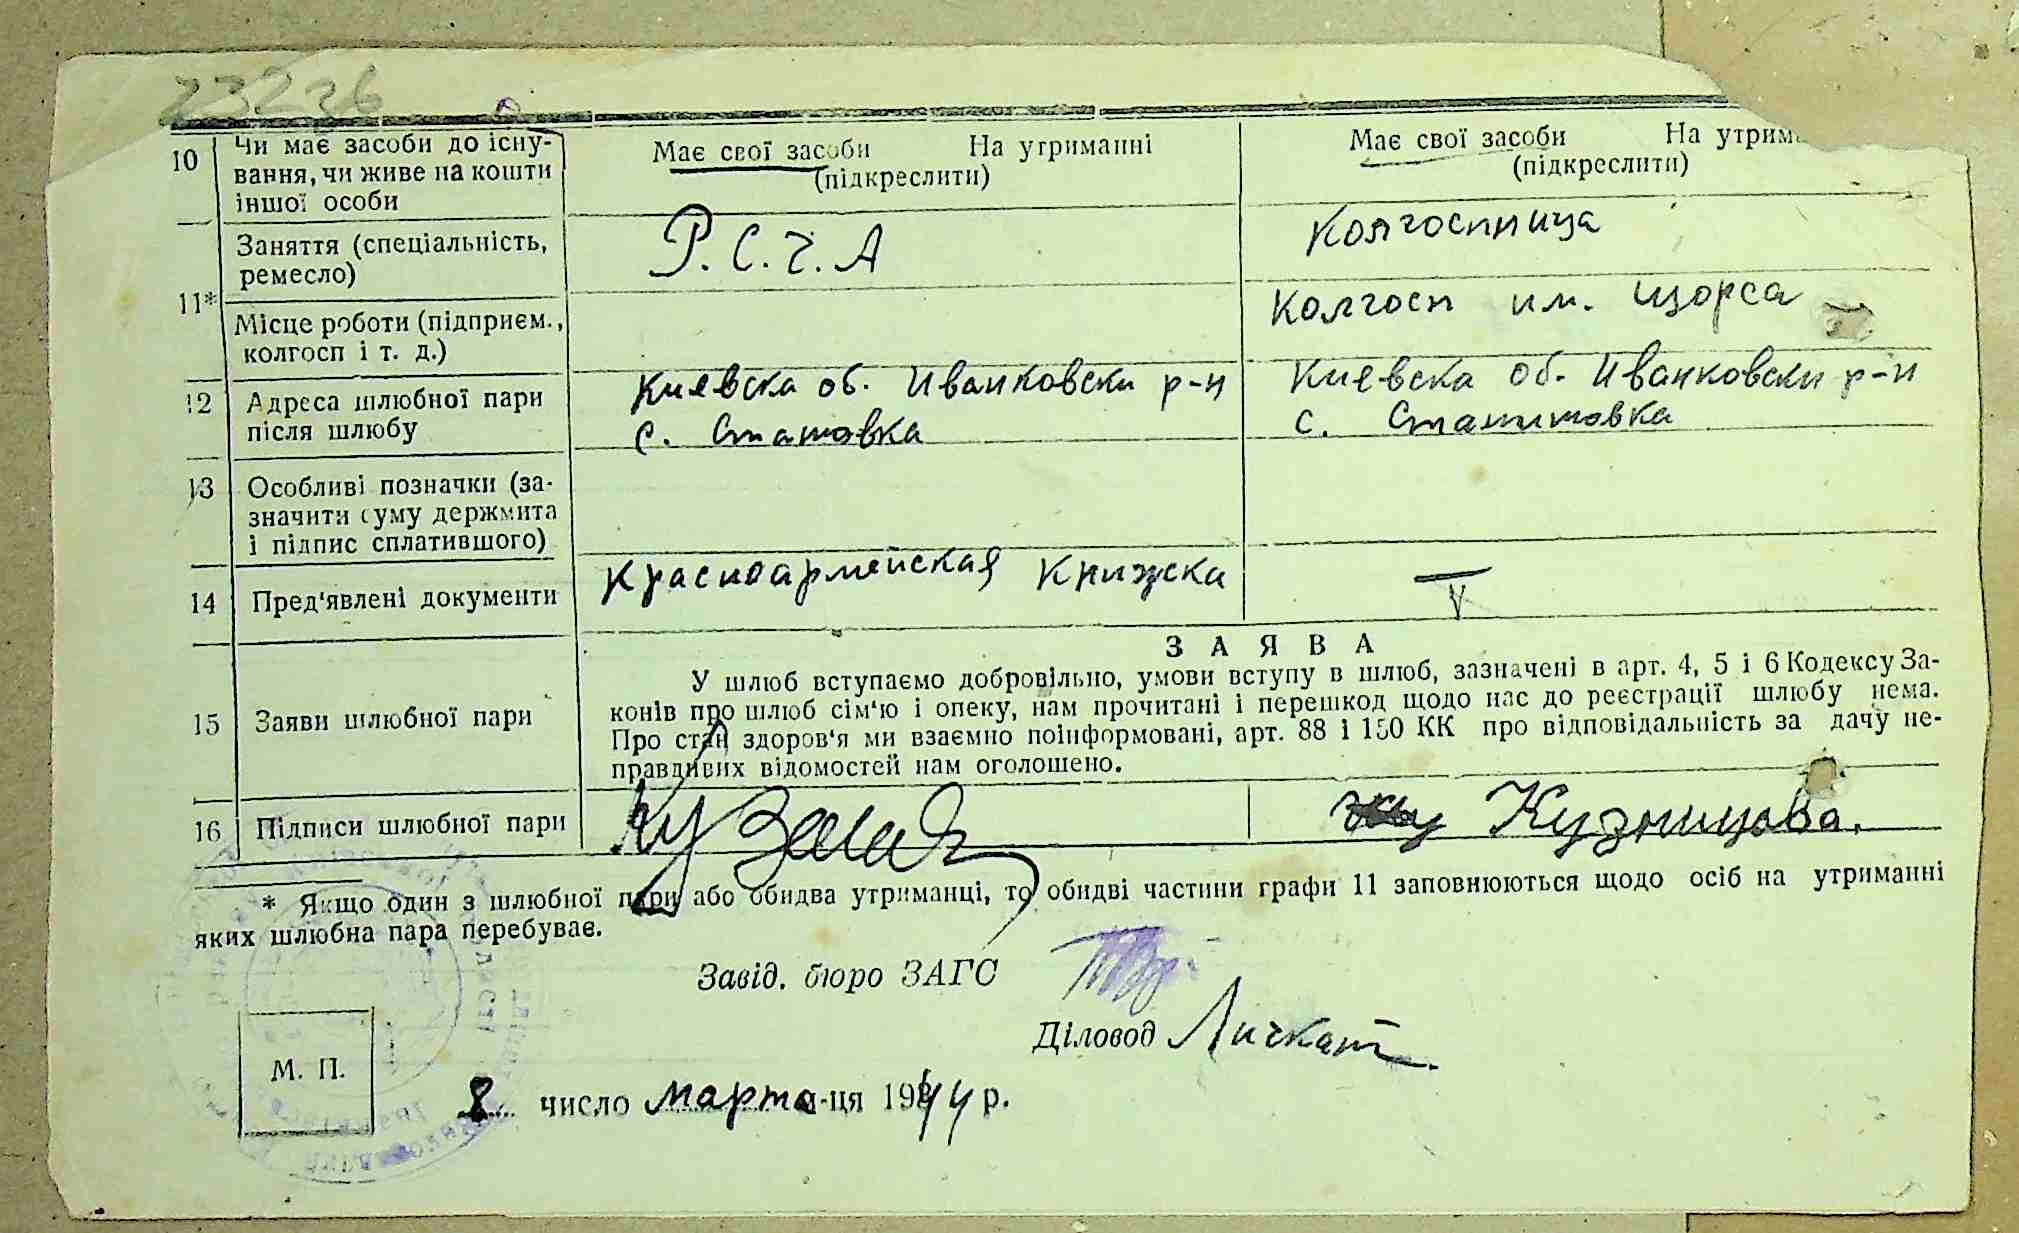 23226
10 Чи має засоби до існу-
вання, чи живе на кошти
іншої особи
Має свої засоби На утриманні
(підкреслити)
Має свої засоби На утрим
(підкреслити)
11* Заняття (спеціальність,
ремесло)
Р. С. Ч. А
Колгоспница
Місце роботи (підприєм.,
колгосп і т. д.)
Колгосп им. Щорса
12 Адреса шлюбної пари
після шлюбу
Киевска об. Иванковски р-н
с.
Киевска об. Иванковски р-н
с.
13 Особливі позначки (за-
значити суму держмита
і підпис сплатившого)
14 Пред'явлені документи
Красноармейская Книжска
15 Заяви шлюбної пари
ЗАЯВА
У шлюб вступаємо добровільно, умови вступу в шлюб, зазначені в арт. 4, 5 і 6 Кодексу За-
конів про шлюб сім'ю і опеку, нам прочитані і перешкод щодо нас до реєстрації шлюбу нема.
Про стан здоров'я ми взаємно поінформовані, арт. 88 і 150 КК про відповідальність за дачу не-
правдивих відомостей нам оголошено.
16 Підписи шлюбної пари
Кузницова.
* Якщо один з шлюбної пари або обидва утриманці, то обидві частини графи 11 заповнюються щодо осіб на утриманні
яких шлюбна пара перебуває.
Завід. бюро ЗАГС
Діловод
М. П.
8 число марта м-ця 1944 р.